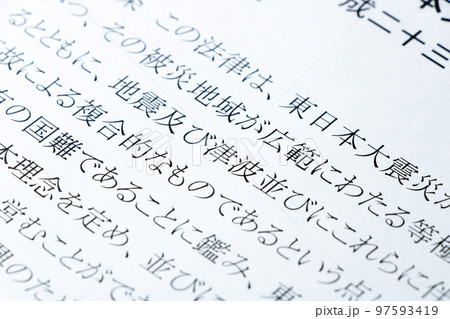 成二十三
この法律は、東日本大震災が
つ、その被災地域が広範にわたる等極
るとともに、地震及び津波並びにこれらに伴
故による複合的なものであるという点
の国難であることに鑑み、東
本理念を定め、並びに
営むことができ
PIXTA
97593419